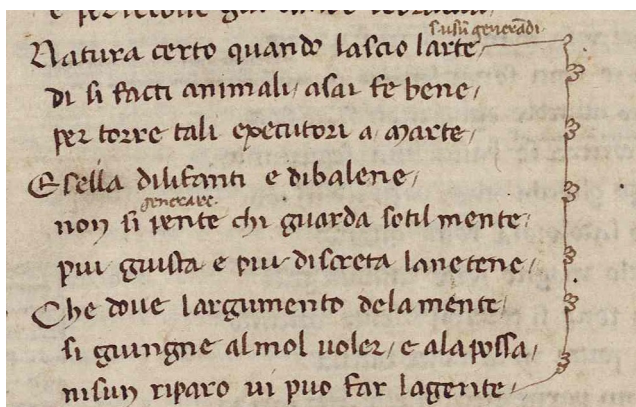 s. usū generādi
Natura certo quando lascio larte
di si facti animali / asai fe bene /
per torre tali executori a marte /
E sella dilifanti e dibalene /
generare
non si pente chi guarda sotil mente /
piu giusta e piu discreta lanetene /
Che doue largumento dela mente /
si giungne al mol uoler / e ala possa /
nisun riparo ui puo far lagente